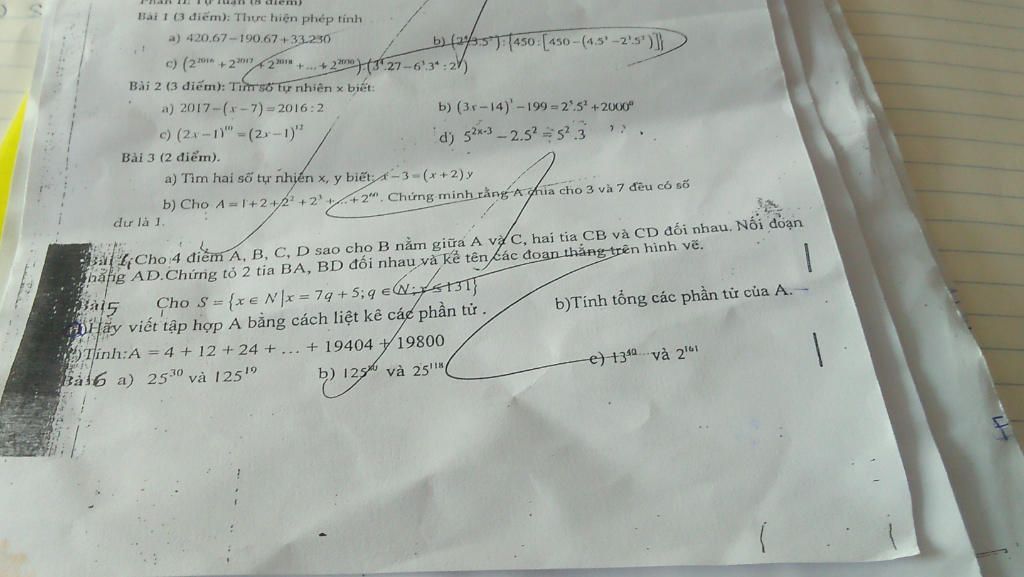 Phần II: Tự luận (8 điểm)
Bài 1 (3 điểm): Thực hiện phép tính
a) 420.67−190.67+33.230 b) (2⁴.3.5²):{450:[450−(4.5³−2³.5²)]}
c) (2²⁰¹⁶+2²⁰¹⁷+2²⁰¹⁸+...+2²⁰³⁰).(3⁴.27−6³.3⁴:2³)
Bài 2 (3 điểm): Tìm số tự nhiên x biết:
a) 2017−(x−7)=2016:2 b) (3x−14)³−199=2³.5²+2000⁰
c) (2x−1)¹⁰=(2x−1)¹² d) 5²ˣ⁻³−2.5²=5².3
Bài 3 (2 điểm).
a) Tìm hai số tự nhiên x, y biết: x−3=(x+2)y
b) Cho A=1+2+2²+2³+...+2⁶⁰. Chứng minh rằng A chia cho 3 và 7 đều có số
dư là 1.
Bài 4: Cho 4 điểm A, B, C, D sao cho B nằm giữa A và C, hai tia CB và CD đối nhau. Nối đoạn
thẳng AD.Chứng tỏ 2 tia BA, BD đối nhau và kể tên các đoạn thẳng trên hình vẽ.
Bài 5 Cho S={x∈N|x=7q+5;q∈N;x≤131}
a)Hãy viết tập hợp A bằng cách liệt kê các phần tử . b)Tính tổng các phần tử của A.
)Tính:A = 4 + 12 + 24 + ... + 19404 + 19800
Bài 6 a) 25³⁰ và 125¹⁹ b) 125⁸⁰ và 25¹¹⁸ c) 13⁴⁰ và 2¹⁶¹